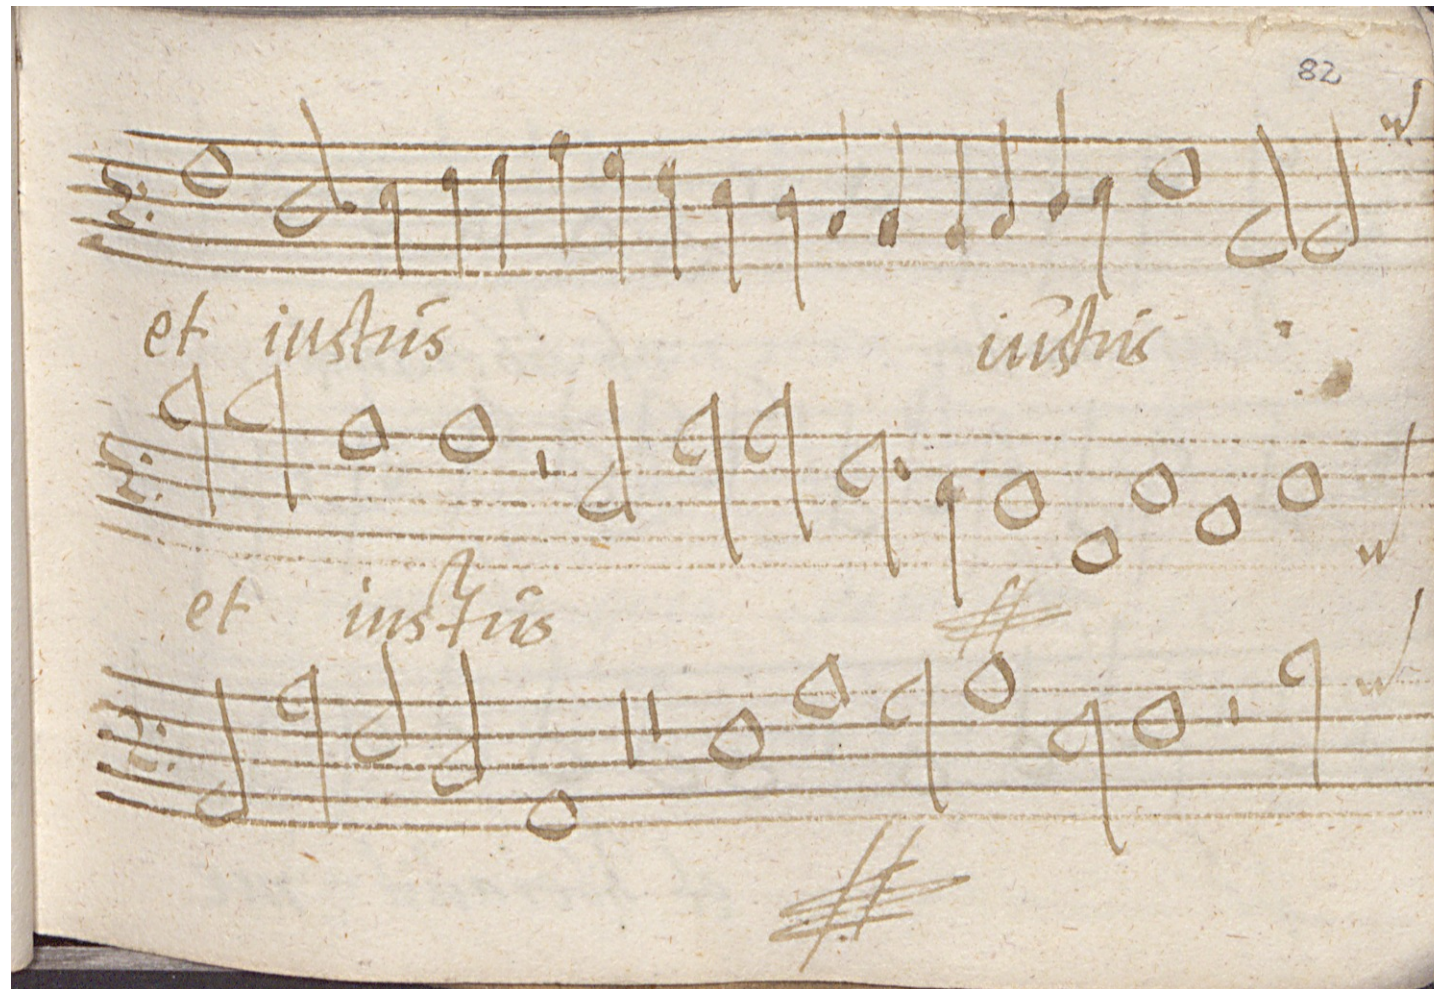 82
et iustus iustus
et iustus